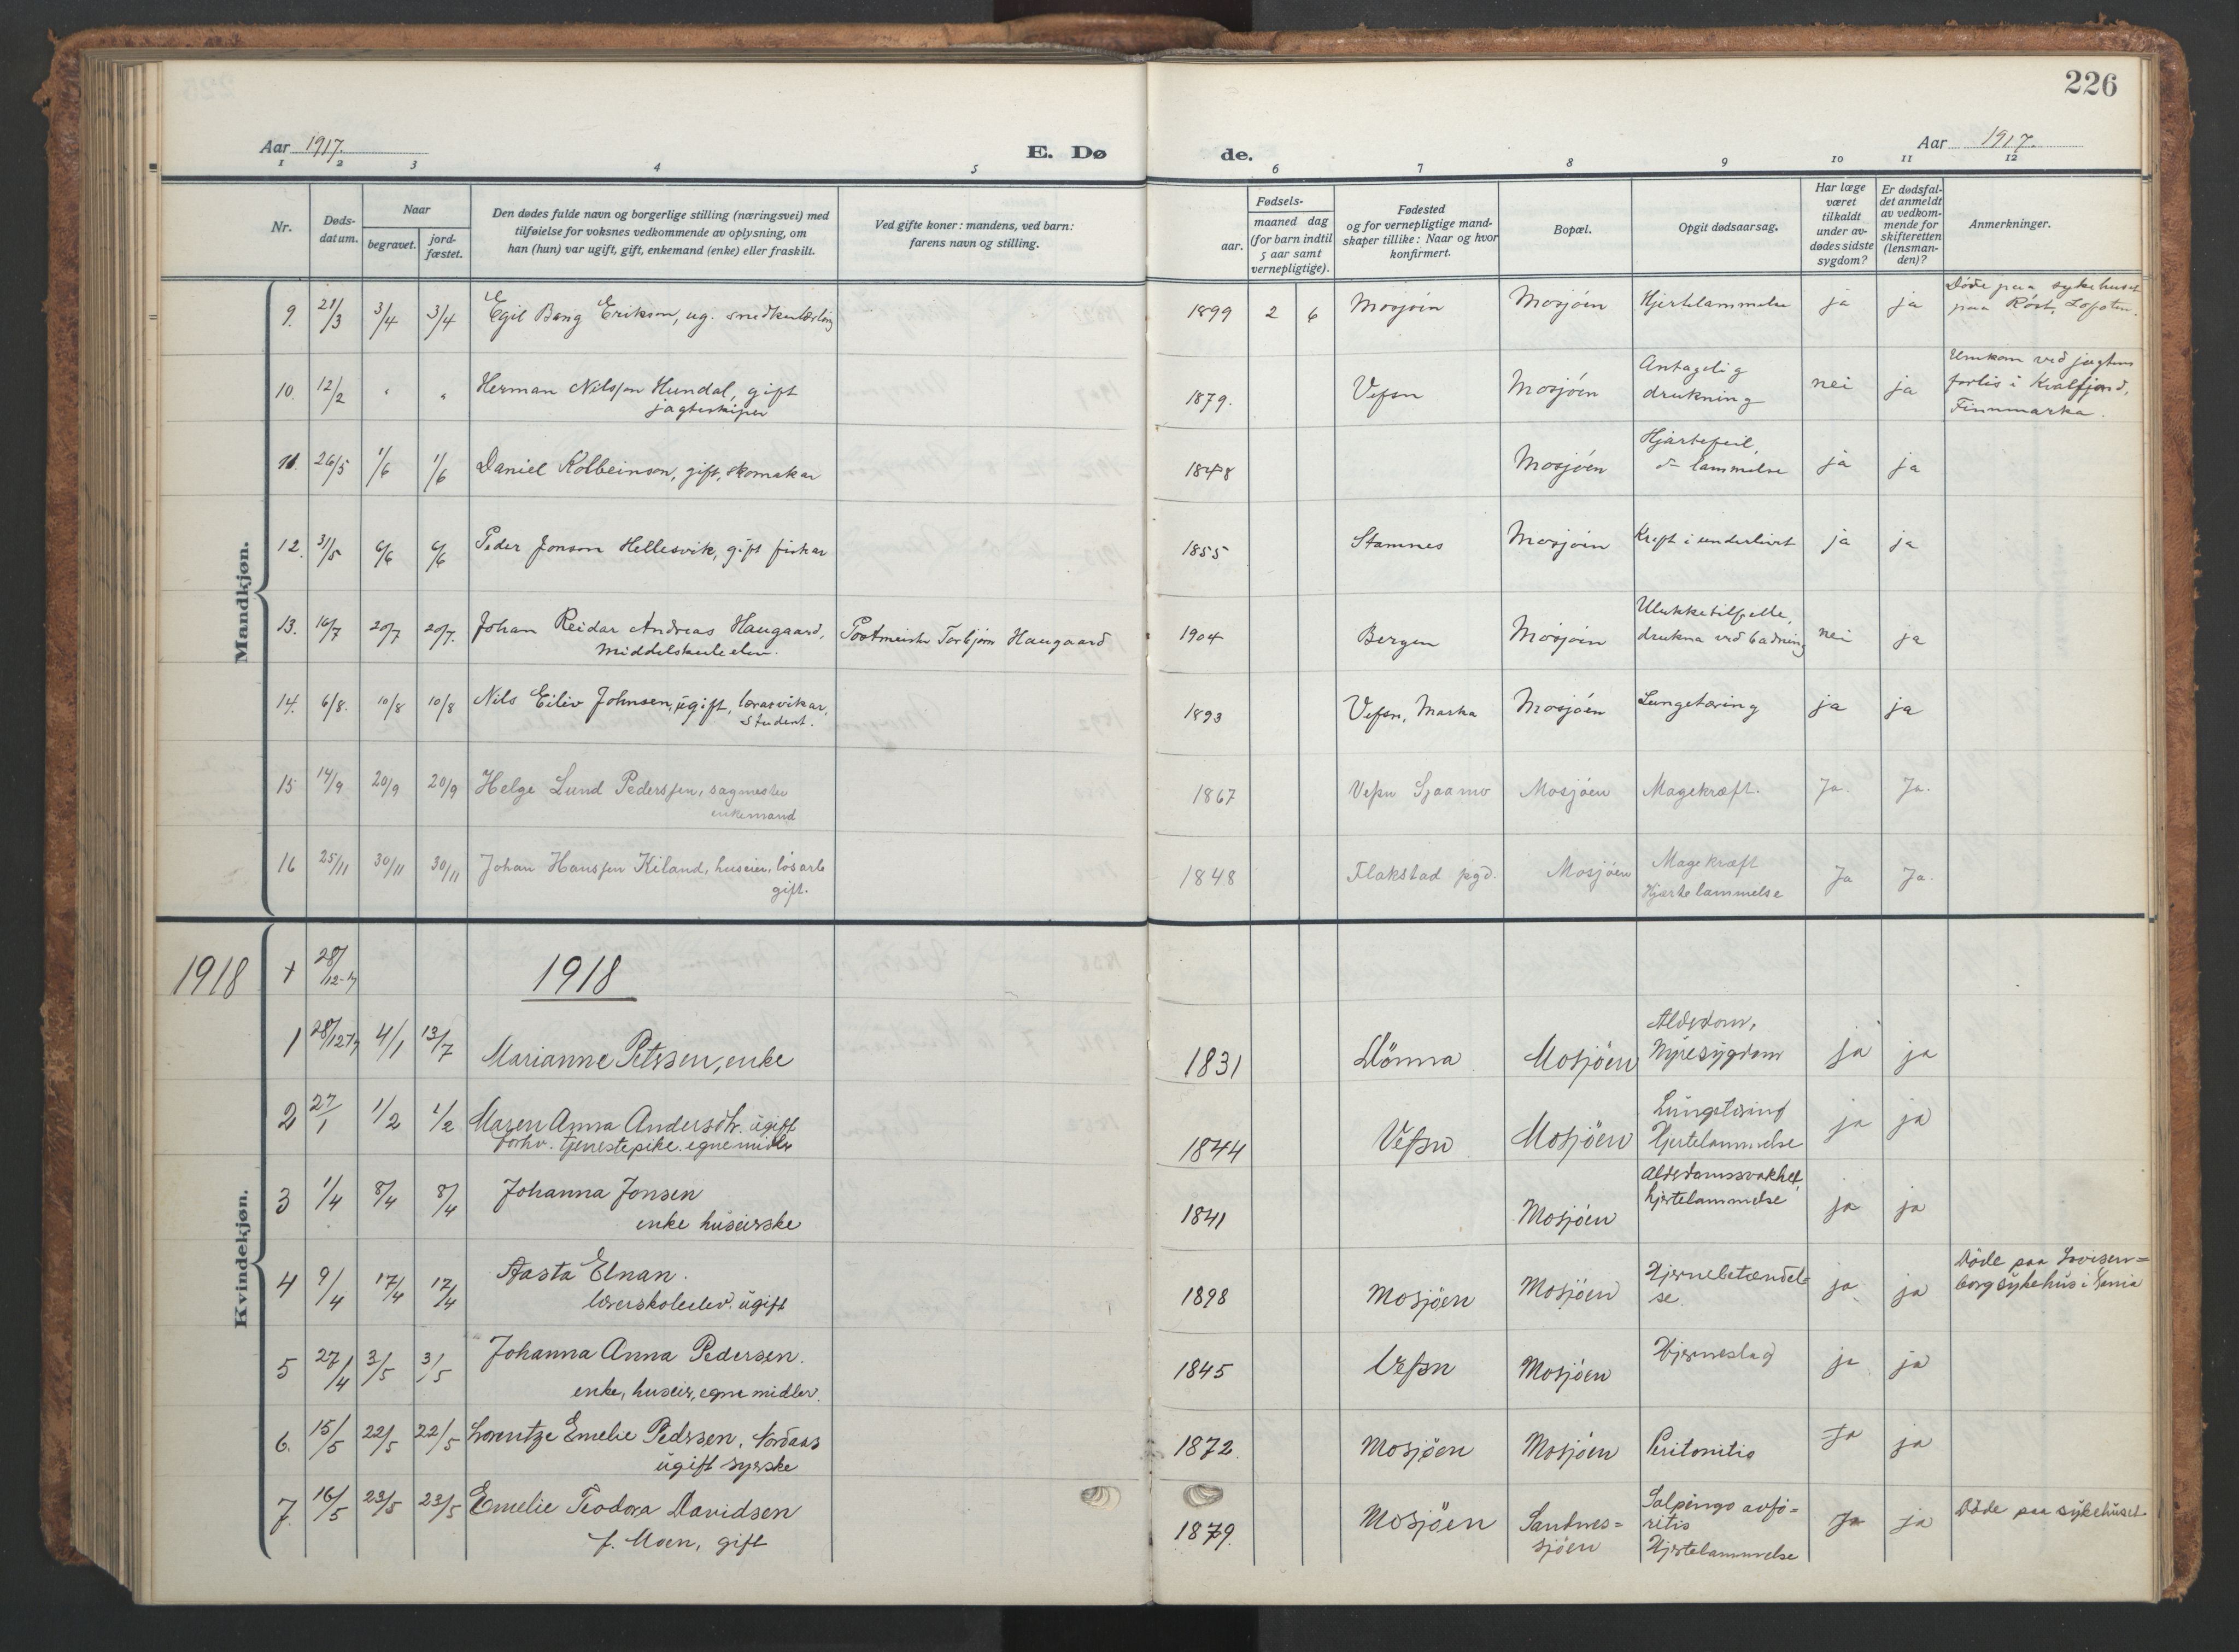 226
Aar 1917.
E. Dø
de.
Aar 1917.
1 2 3 4 5 6 7 8 9 10 11 12
Nr.
Døds-
datum.
Naar
begravet.
jord-
fæstet.
Den dødes fulde navn og borgerlige stilling (næringsvei) med
tilføielse for voksnes vedkommende av oplysning, om
han (hun) var ugift, gift, enkemand (enke) eller fraskilt.
Ved gifte koner: mandens, ved barn:
farens navn og stilling.
Fødsels-
aar.
maaned dag
(for barn indtil
5 aar samt
vernepligtige).
Fødested
og for vernepligtige mand-
skaper tillike: Naar og hvor
konfirmert.
Bopæl.
Opgit dødsaarsag.
Har læge
været
tilkaldt
under av-
dødes sidste
sygdom?
Er dødsfal-
det anmeldt
av vedkom-
mende for
skifteretten
(lensman-
den)?
Anmerkninger.
Mandkjøn.
9. 21/3 3/4 3/4 Egil Bang Erikson, ug. snedkerlærling 1899 2 6 Mosjøen Mosjøen Hjertelammelse ja ja Døde paa sykehuset
paa Røst, Lofoten.
10. 12/2 " " Herman Nilssen Hundal, gift
jagteskiper
1879. Vefsn Mosjøen Antagelig
drukning
nei ja Umkom ved jagtens
forlis i Kvalfjord,
Finnmarka.
11. 26/5 1/6 1/6 Daniel Kolbeinson, gift, skomakar 1848 Mosjøen Hjartefeil,
do lammelse
ja ja
12. 31/5 6/6 6/6 Peder Jonson Hellesvik, gift fiskar 1855 Stamnes Mosjøen Kreft i underlivet ja ja
13. 16/7 20/7 20/7. Johan Reidar Andreas Haugaard,
Middelskuleelev.
Postmeister Torbjørn Haugaard 1904 Bergen Mosjøen Ulukketilfelle,
drukna ved badning
nei ja
14. 6/8. 10/8 10/8 Nils Eiliv Johnsen, ugift, læraevikar,
student.
1893 Vefsn, Marka Mosjøen Lungetæring ja ja
15 14/9 20/9 20/9 Helge Lund Pederssen, sagmester
enkemand
1867 Vefsn Sjaamo Mosjøen Magekræft. Ja. Ja.
16 25/11 30/11 30/11 Johan Hanssen Kiland, huseier, løsarb
gift.
1848 Flakstad pgd. Mosjøen Magekræft
Hjærtelammelse
Ja Ja.
1918 + 28/12-17 1918
Kvindekjøn.
1 28/12 17 4/1 13/7 Marianne Petrsen, enke 1831 Dönna Mosjöen Alderdom,
Nyresygdom
ja ja
2 27/1 1/2 1/2 Maren Anna Andersdtr. ugift
forhv. tjenestepike. egne midler
1844 Vefsn Mosjöen Lungetæring
Hjertelammelse
ja ja
3 1/4 8/4 8/4 Johanna Jonsen
enke huseierske
1841 Mosjöen Alderdomssvakhet,
hjertelammelse
ja ja
4 9/4 17/4 17/4 Aasta Elnan.
lærerskoleelev. ugift
1898 Mosjöen Mosjöen Hjernebetændel-
se.
ja ja Döde paa Lovisen=
borg sykehus i X.ania
5 27/4 3/5 3/5 Johanna Anna Pedersen.
enke, huseier, egne midler.
1845 Vefsn Mosjöen Hjerneslag ja ja
6. 15/5 22/5 22/5 Lorentze Emelie Pedersen, Nordaas
ugift syerske
1872. Mosjöen Mosjöen Peritonitis Ja ja
7. 16/5 23/5 23/5 Emelie Teodora Davidsen
f. Moen, gift
1879. Mosjöen Sandnes=
sjöen
Salpingo oofo=
ritis
Hjertelammelse
Ja ja Döde paa sykehuset